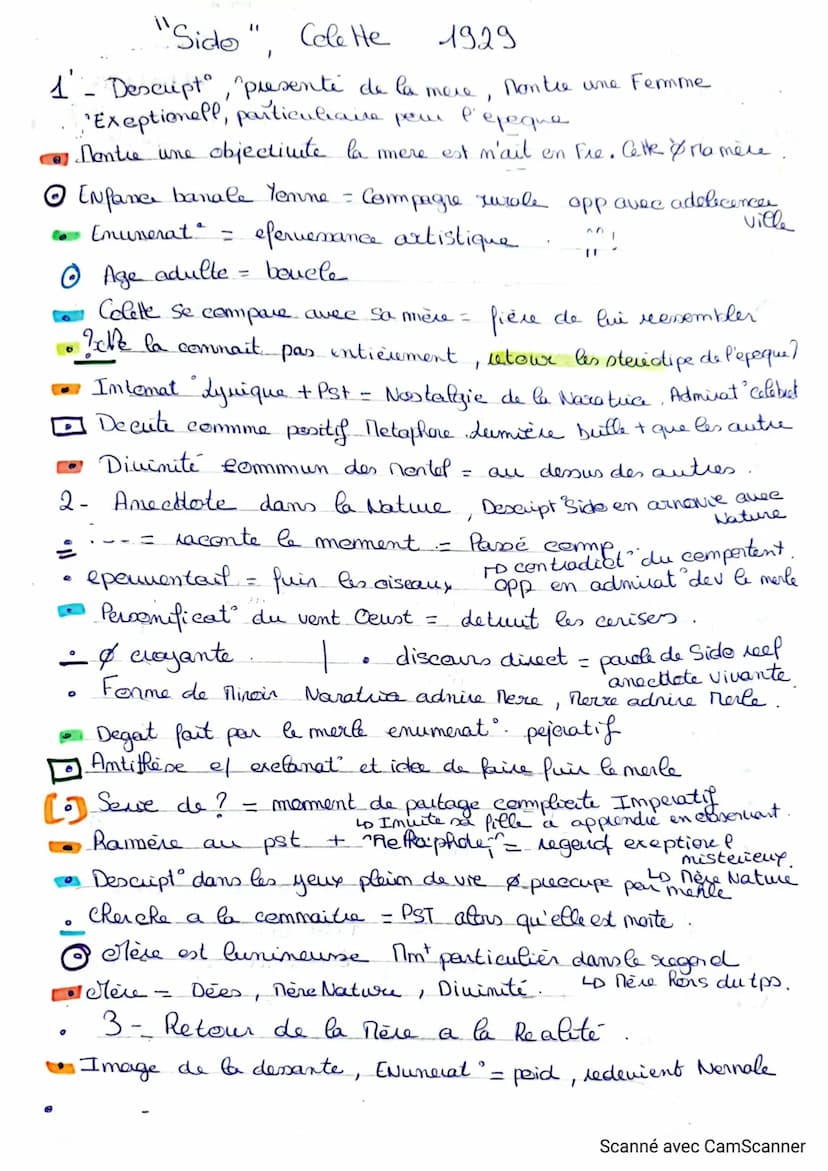 "Sido", Colette 1929
1 - Descript°, presenté de la mere, Montre une Femme
Exeptionell, particuliaire pour l'epoque
Montre une objectivité la mere est m'ait en Fre. Cette Ø ma mère.
Enfance banale Yonne = Campagne rurale opp avec adolicence
ville
Enumerat° = efervemance artistique. "" !
Age adulte = boucle
Colette se compare avec sa mère = fière de lui ressembler
la connait pas entièrement, retour les steriotipe de l'epoque?
Intonat° Lyrique + Pst = Nostalgie de la Naratrice. Admirat° celebrat
Decrite commme positif Metaphore Lumière brille + que les autre
Divinité commun des mortel = au dessus des autres.
2- Anecttote dans la Nature, Descript° Sido en armonie avec
Nature
: --- = raconte le moment = Passé comp
→ contradict° du comportent.
epouventail = fuir les oiseaux opp en admirat° dev le merle
Personnificat° du vent Oeust = detruit les cerises.
Ø croyante. | • discours direct = parole de Sido reel
anecttote vivante
Forme de Miroir Naratrice admire Mere, Merre admire Merle.
Degat fait par le merle enumerat°. pejoratif
Antiffrase e/ exclamat° et idee de faire fuir le merle
Serie de ? = moment de partage complicite Imperatif
↳ Invite sa fille a apprendre en observant.
Ramère au pst + "Mettaphore" = regard exeptionel
misterieux.
↳ Mère Nature
Descript° dans les yeux plein de vie Ø preoccupe par merle
Cherche a la connaitre = PST alors qu'elle est morte.
Mère est lumineuse Mmt particulier dans le regard
↳ Mère Hors du tps.
Mère = Dées, Mère Nature, Divinité.
3- Retour de la Mère a la Realité.
Image de la dessante, Enumerat° = poid, redevient Normale
-
Scanné avec CamScanner